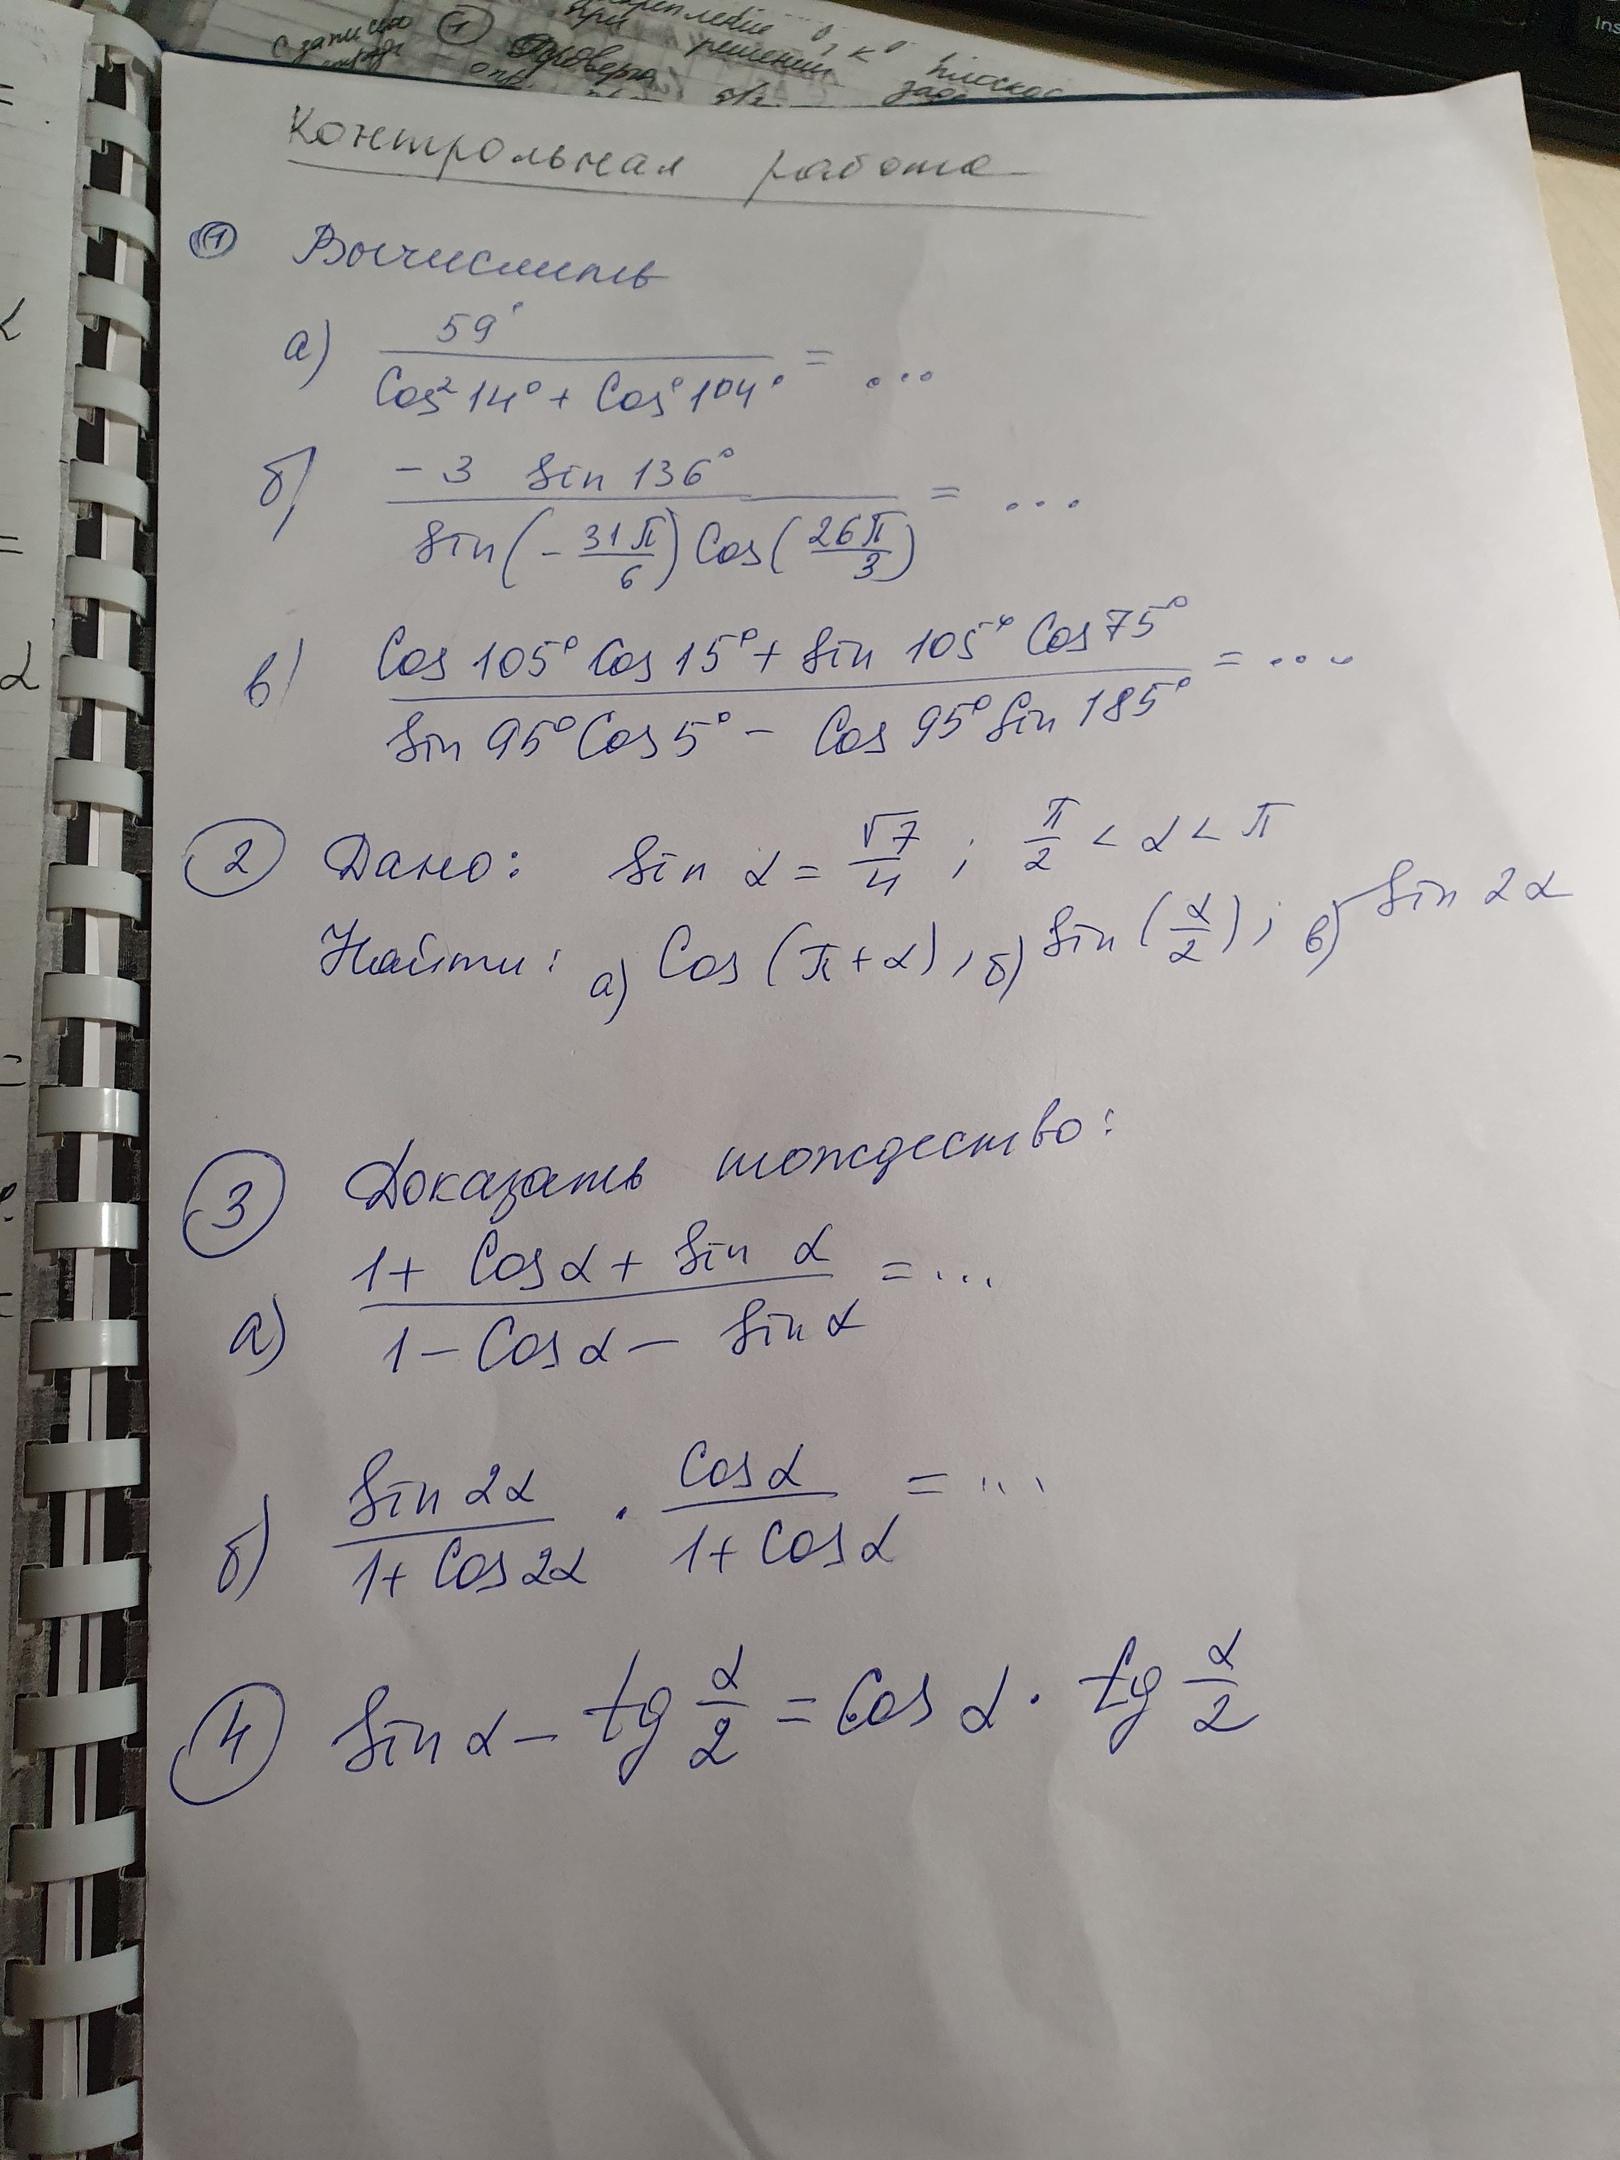 с записью
①
Проверка
при решении
задач
Контрольная работа
① Вычислить
а) 59° / (Cos² 14° + Cos² 104°) = ...
б) (- 3 sin 136°) / (sin(-31π/6) Cos(26π/3)) = ...
в) (Cos 105° Cos 15° + sin 105° Cos 75°) / (sin 95° Cos 5° - Cos 95° sin 185°) = ....
② Дано: sin α = √7/4 ; π/2 < α < π
Найти: а) Cos (π + α) , б) sin (α/2) ; в) sin 2α
③ Доказать тождество:
а) (1 + Cos α + sin α) / (1 - Cos α - sin α) = ...
б) sin 2α / (1 + Cos 2α) · Cos α / (1 + Cos α) = ...
④ sin α - tg α/2 = Cos α · tg α/2
Ins